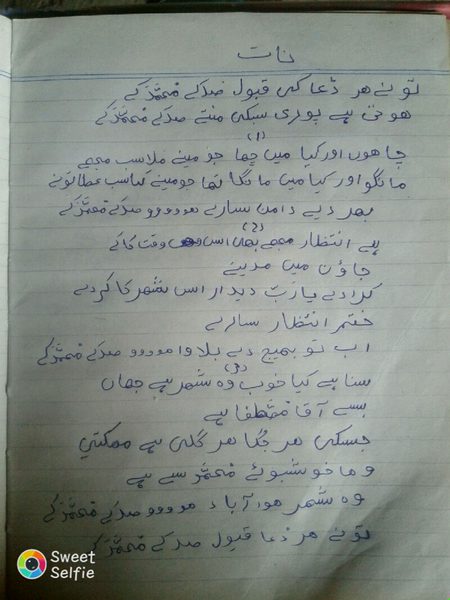 نات
تو نے هر دُعا کی قبول صدکے مُحمَّد کے
هوتی ہے پوری سبکی منتے صدکے مُحمَّد کے
(1)
چاهوں اور کیا میں چها جو مینے ملاسب مجهے
مانگو اور کیا میں مانگا تها جو مینے کیاسب عطا تونے
بهر دیے دامن سارے هوووو صدکے مُحمَّد کے
(2)
ہے انتظار مجهے بهی اس وقت کا کے
جاؤن میں مدینے
کرادے یا رَبّ دیدار اس شهر کا کردے
ختم انتظار سارے
اب تو بهیج دے بلاوا موووو صدکے مُحمَّد کے
(3)
سنا ہے کیا خوب وه شهر ہے جهاں
بسے آقا مُصطفا ہے
جسکی هر جُگا هر گلی ہے مهکتي
وها خوشبوئے مُحمَّد سے ہے
وه شهر هوا آباد موووو صدکے مُحمَّد کے
تو نے هر دُعا قبول صدکے مُحمَّد کے
Sweet
Selfie